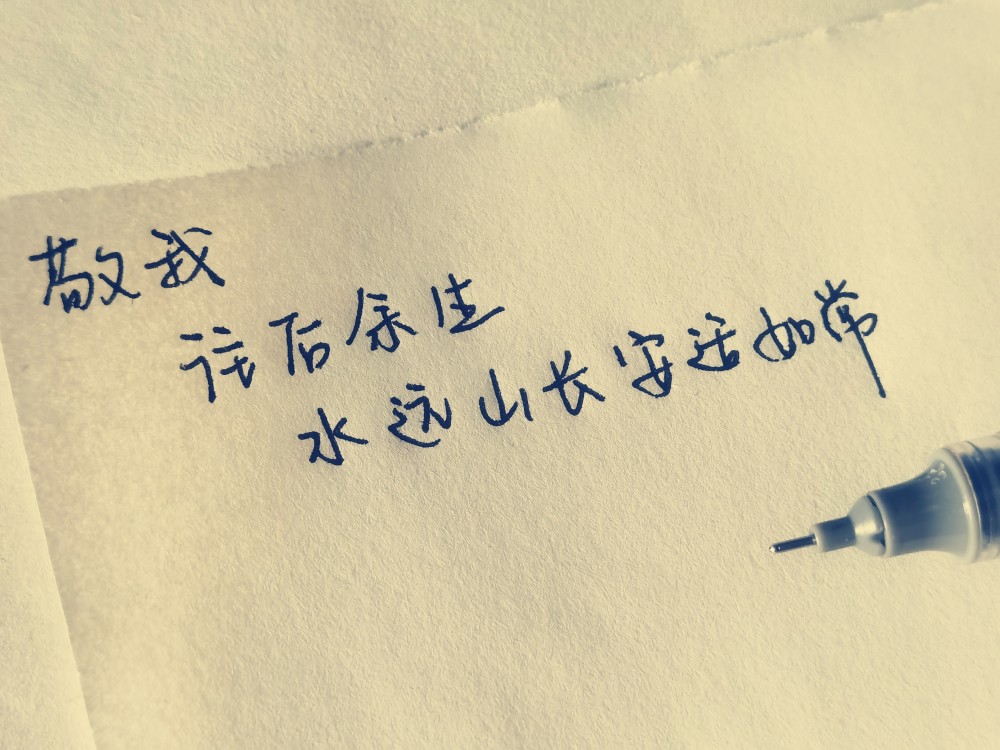 敬我
往后余生
水远山长安适如常